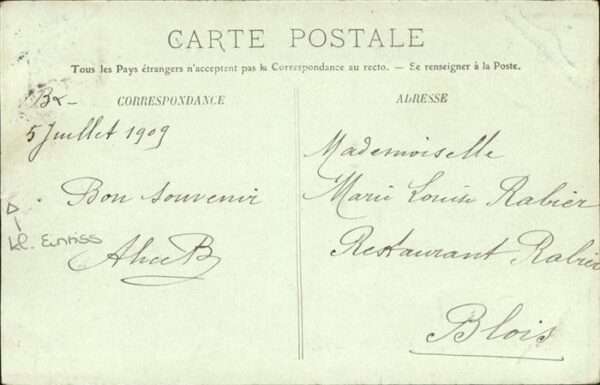 CARTE POSTALE
Tous les Pays étrangers n'acceptent pas la Correspondance au recto. — Se renseigner à la Poste.
CORRESPONDANCE
5 Juillet 1909
Bon souvenir
Alice B
ADRESSE
Mademoiselle
Marie Louise Rabier
Restaurant Rabier
Blois